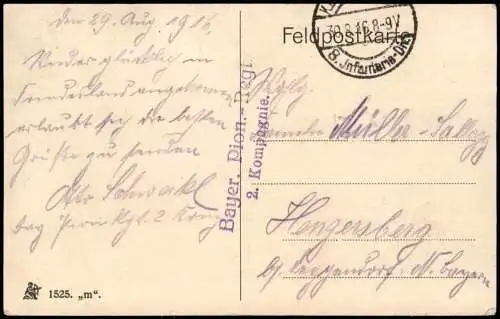 den 29. Aug. 1916,
Wieder glücklich in
Feindesland angekommen
erlaubt sich die besten
Grüße zu senden
Otto
2. Komp
1525. „m".
Bayer. Pion.-Regt.
2. Kompagnie.
Feldpostkarte
30.8.16. 8-9V
8. Infanterie-Div.
Familie Müller-
Hengersberg
Deggendorf N. Bayern